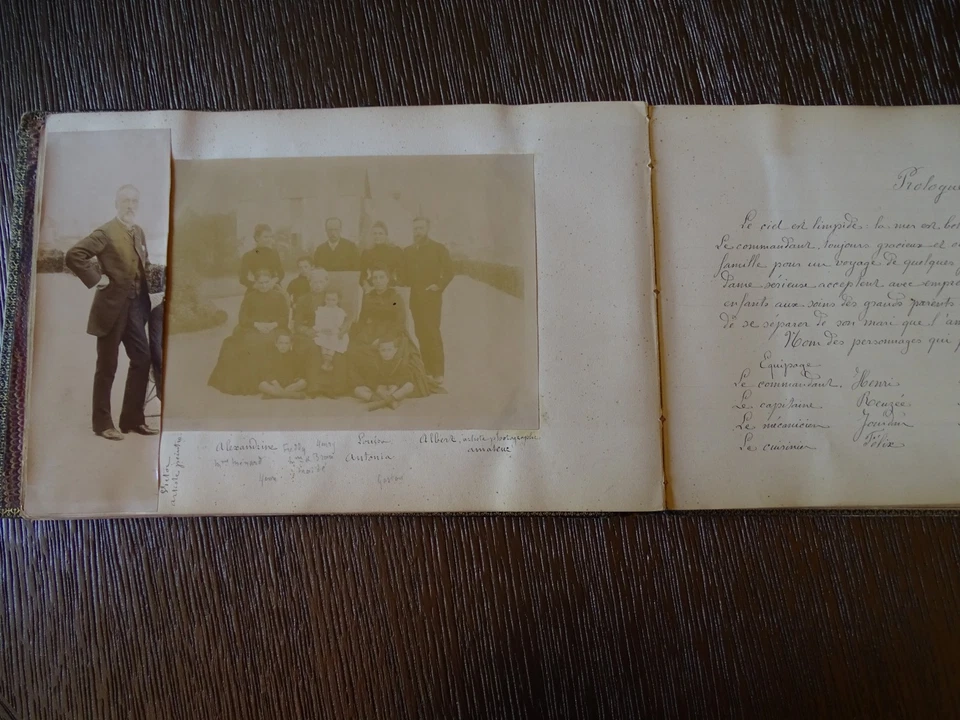 Victor
artiste peintre
Alexandrine Freddy Henri Louise Albert, artiste photographe
Mme Antonia amateur
Gaston
Prologue
Le ciel est limpide la mer est
Le commandant, toujours gracieux et
famille pour un voyage de quelques
dame sérieuse acceptent avec
enfants aux soins des grands parents
de se séparer de son mari que l'
Nom des personnages qui
Équipage
Le commandant, Henri
Le capitaine Rouzée
Le mécanicien Jourdain
Le cuisinier Félix